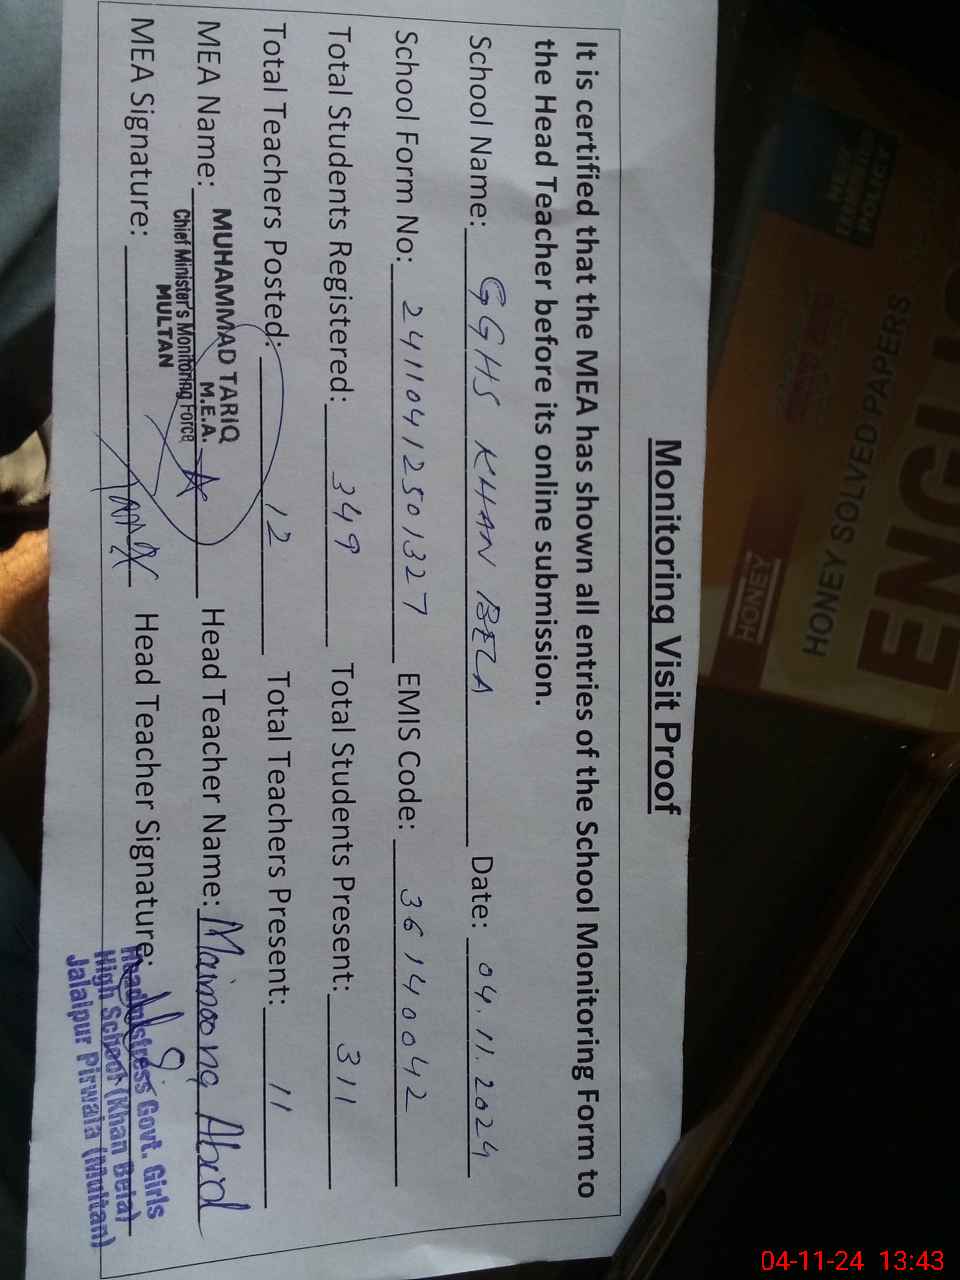 Monitoring Visit Proof
It is certified that the MEA has shown all entries of the School Monitoring Form to
the Head Teacher before its online submission.
School Name: GGHS KHAN BELA Date: 04.11.2024
School Form No: 24110412501327 EMIS Code: 36140042
Total Students Registered: 349 Total Students Present: 311
Total Teachers Posted: 12 Total Teachers Present: 11
MEA Name: MUHAMMAD TARIQ Head Teacher Name: Maimoona Abid
M.E.A.
Chief Minister's Monitoring Force
MULTAN
MEA Signature: Head Teacher Signature:
Headmistress Govt. Girls
High School (Khan Bela)
Jalalpur Pirwala (Multan)
HONEY SOLVED PAPERS
HONEY
04-11-24 13:43